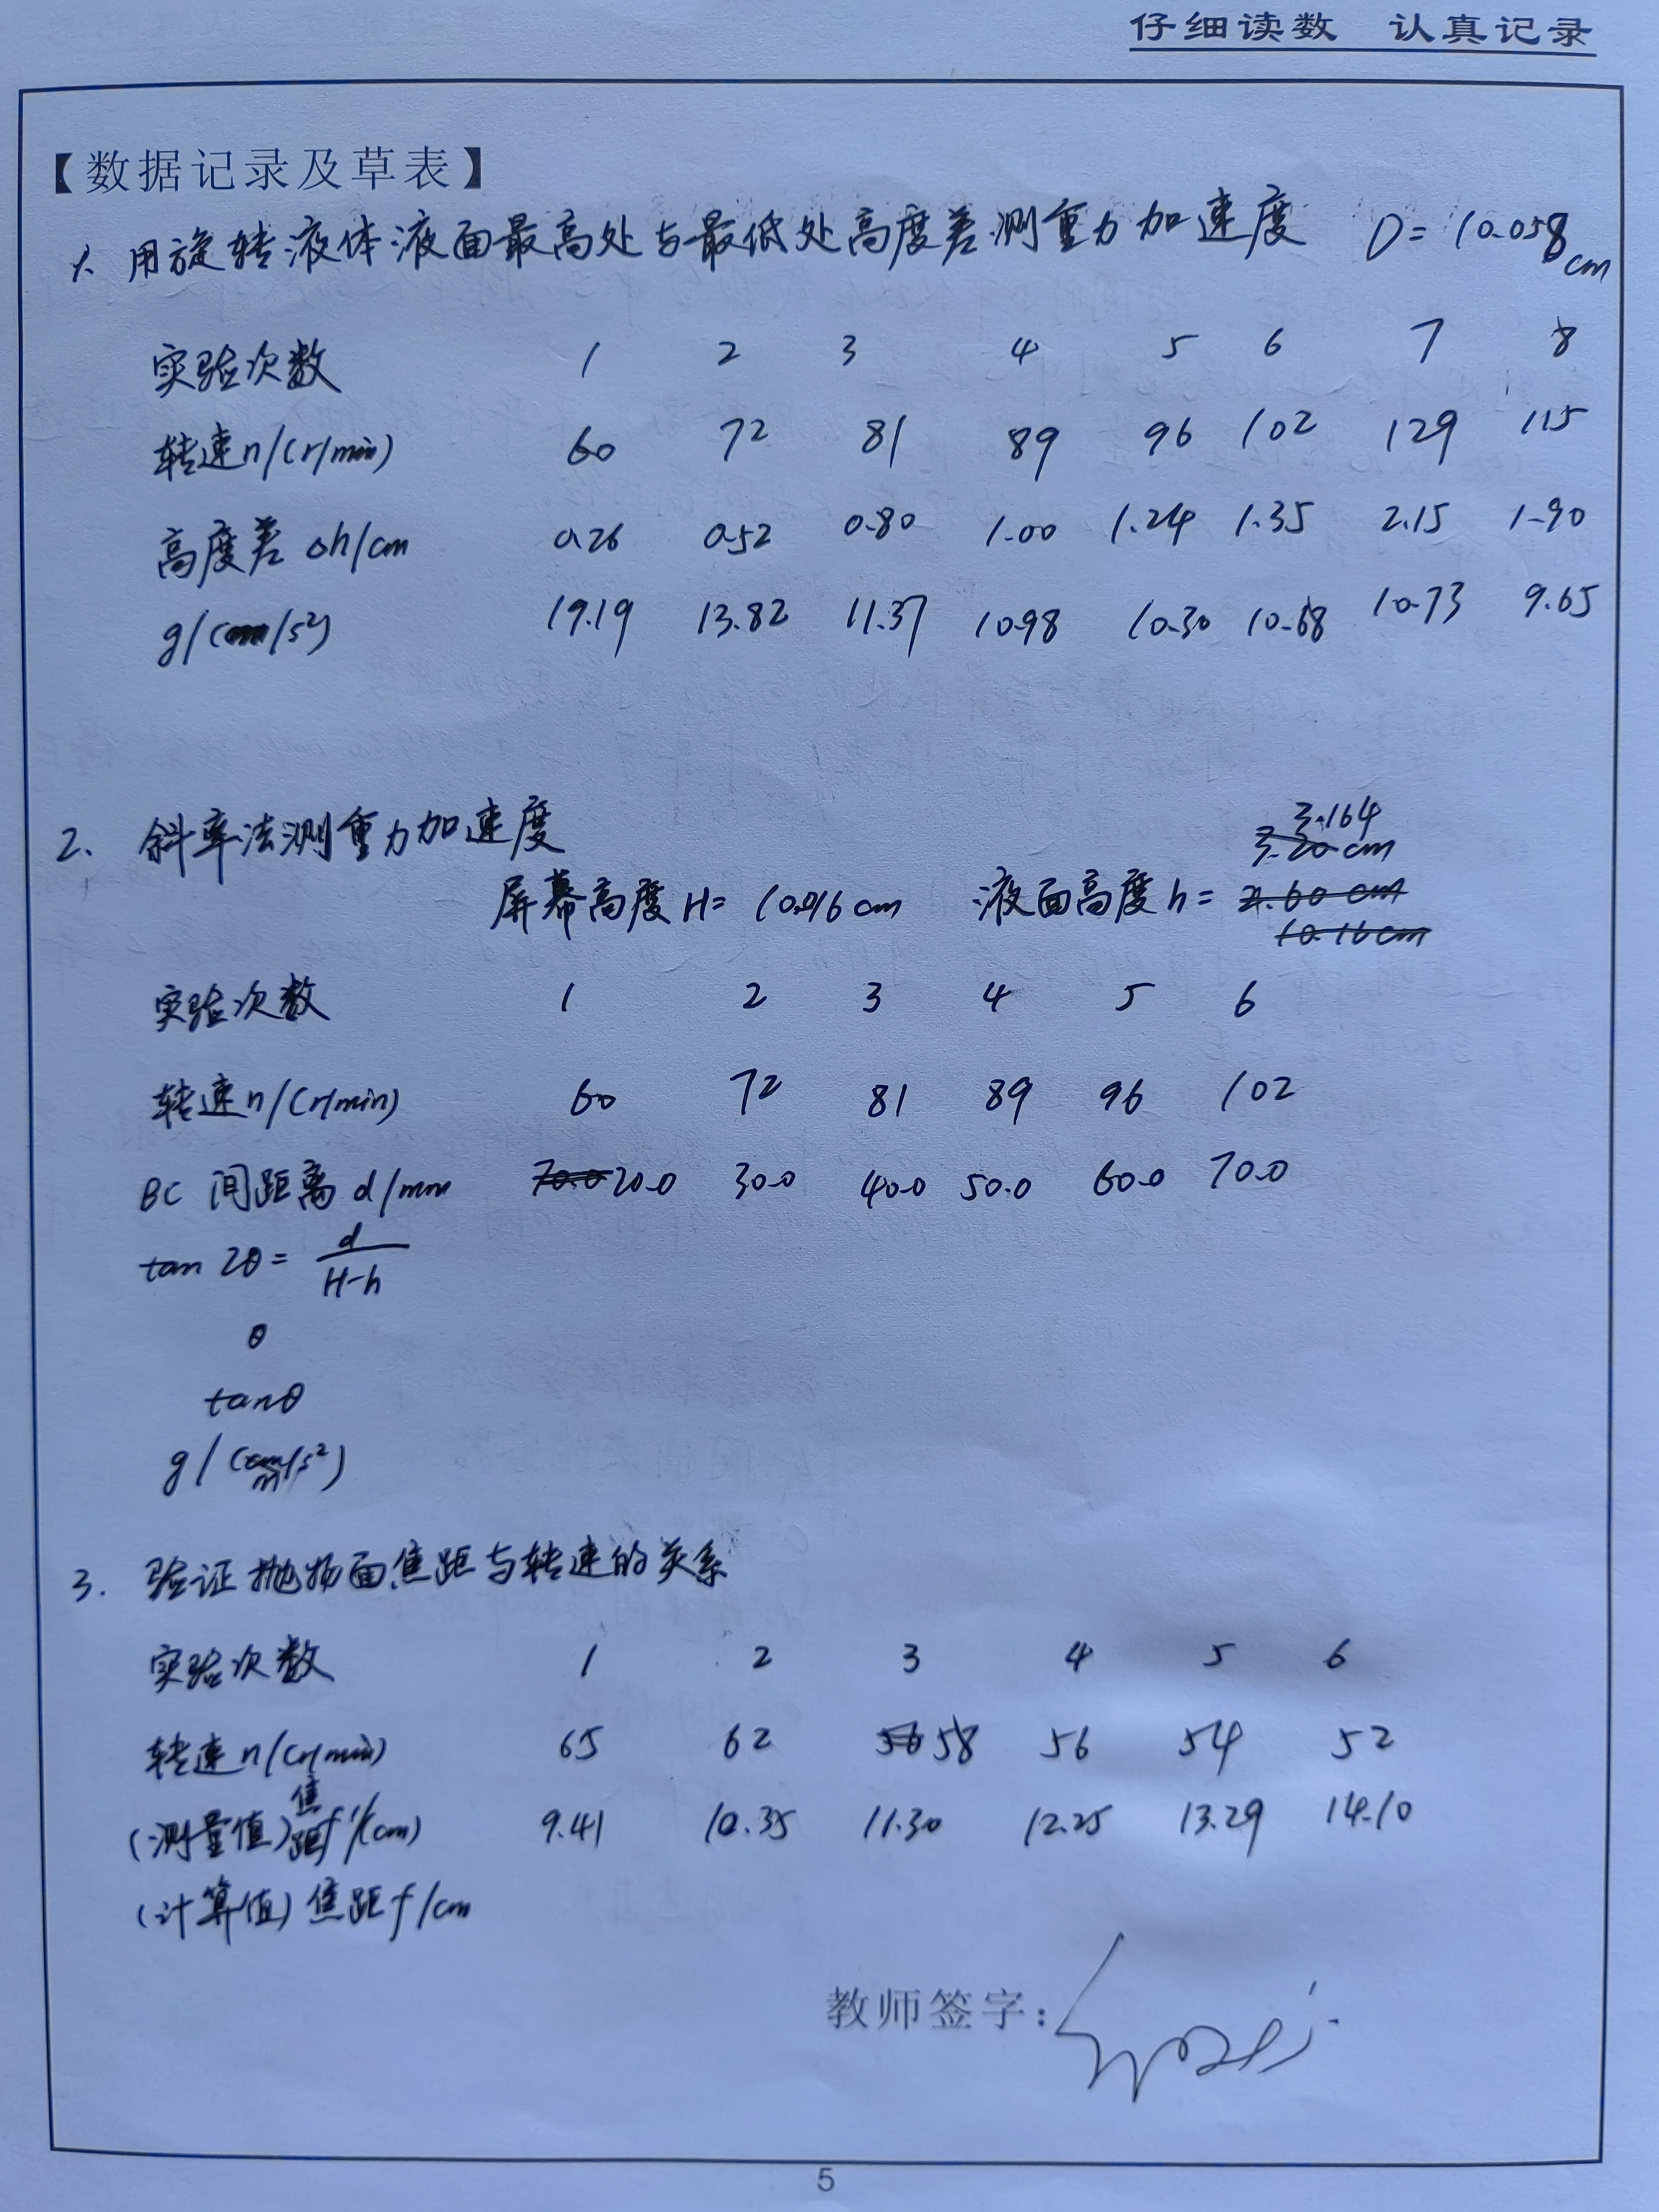 仔细读数 认真记录
【数据记录及草表】
1. 用旋转液体液面最高处与最低处高度差测重力加速度 D=10.058cm
实验次数 1 2 3 4 5 6 7 8
转速n/(r/min) 60 72 81 89 96 102 129 115
高度差 Δh/cm 0.26 0.52 0.80 1.00 1.24 1.35 2.15 1.90
g/(m/s²) 19.19 13.82 11.37 10.98 10.30 10.68 10.73 9.65
2. 斜率法测重力加速度
3.164
3.20 cm
屏幕高度H= 10.016cm 液面高度h= 2.60 cm
10.16cm
实验次数 1 2 3 4 5 6
转速n/(r/min) 60 72 81 89 96 102
BC 间距离 d/mm 70.0 20.0 30.0 40.0 50.0 60.0 70.0
tan 2θ = d/(H-h)
θ
tanθ
g/(cm/s²)
m
3. 验证抛物面焦距与转速的关系
实验次数 1 2 3 4 5 6
转速n/(r/min) 65 62 56 58 56 54 52
(测量值)焦距f'/(cm) 9.41 10.35 11.30 12.25 13.29 14.10
(计算值)焦距f/cm
教师签字:
5